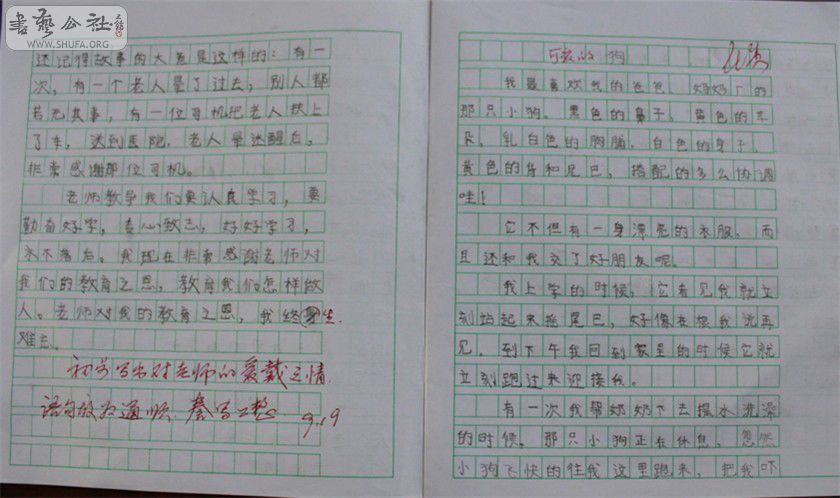 書藝公社
WWW.SHUFA.ORG
还记得故事的大意是这样的：有一
次，有一个老人晕了过去，别人都
若无其事，有一位司机把老人扶上
了车，送到医院，老人晕迷醒后，
非常感谢那位司机。
老师教导我们要认真学习，要
勤奋好学，专心致志，好好学习，
永不落后。我现在非常感谢老师对
我们的教育之恩，教育我们怎样做
人。老师对我的教育之恩，我终身生
难忘。
初步写出对老师的爱戴之情
语句较为通顺 书写工整
9.19
可爱的狗
我最喜欢我的爸爸、奶奶厂的
那只小狗。黑色的鼻子，黄色的耳
朵，乳白色的胸脯，白色的身子，
黄色的背和尾巴，搭配的多么协调
哇！
它不但有一身漂亮的衣服，而
且还和我交了好朋友呢。
我上学的时候，它看见我就立
刻站起来摇尾巴，好像在跟我说再
见。到下午我回到家里的时候它就
立刻跑过来迎接我。
有一次我帮奶奶下去提水洗澡
的时候，那只小狗正在休息，忽然
小狗飞快的往我这里跑来，把我吓